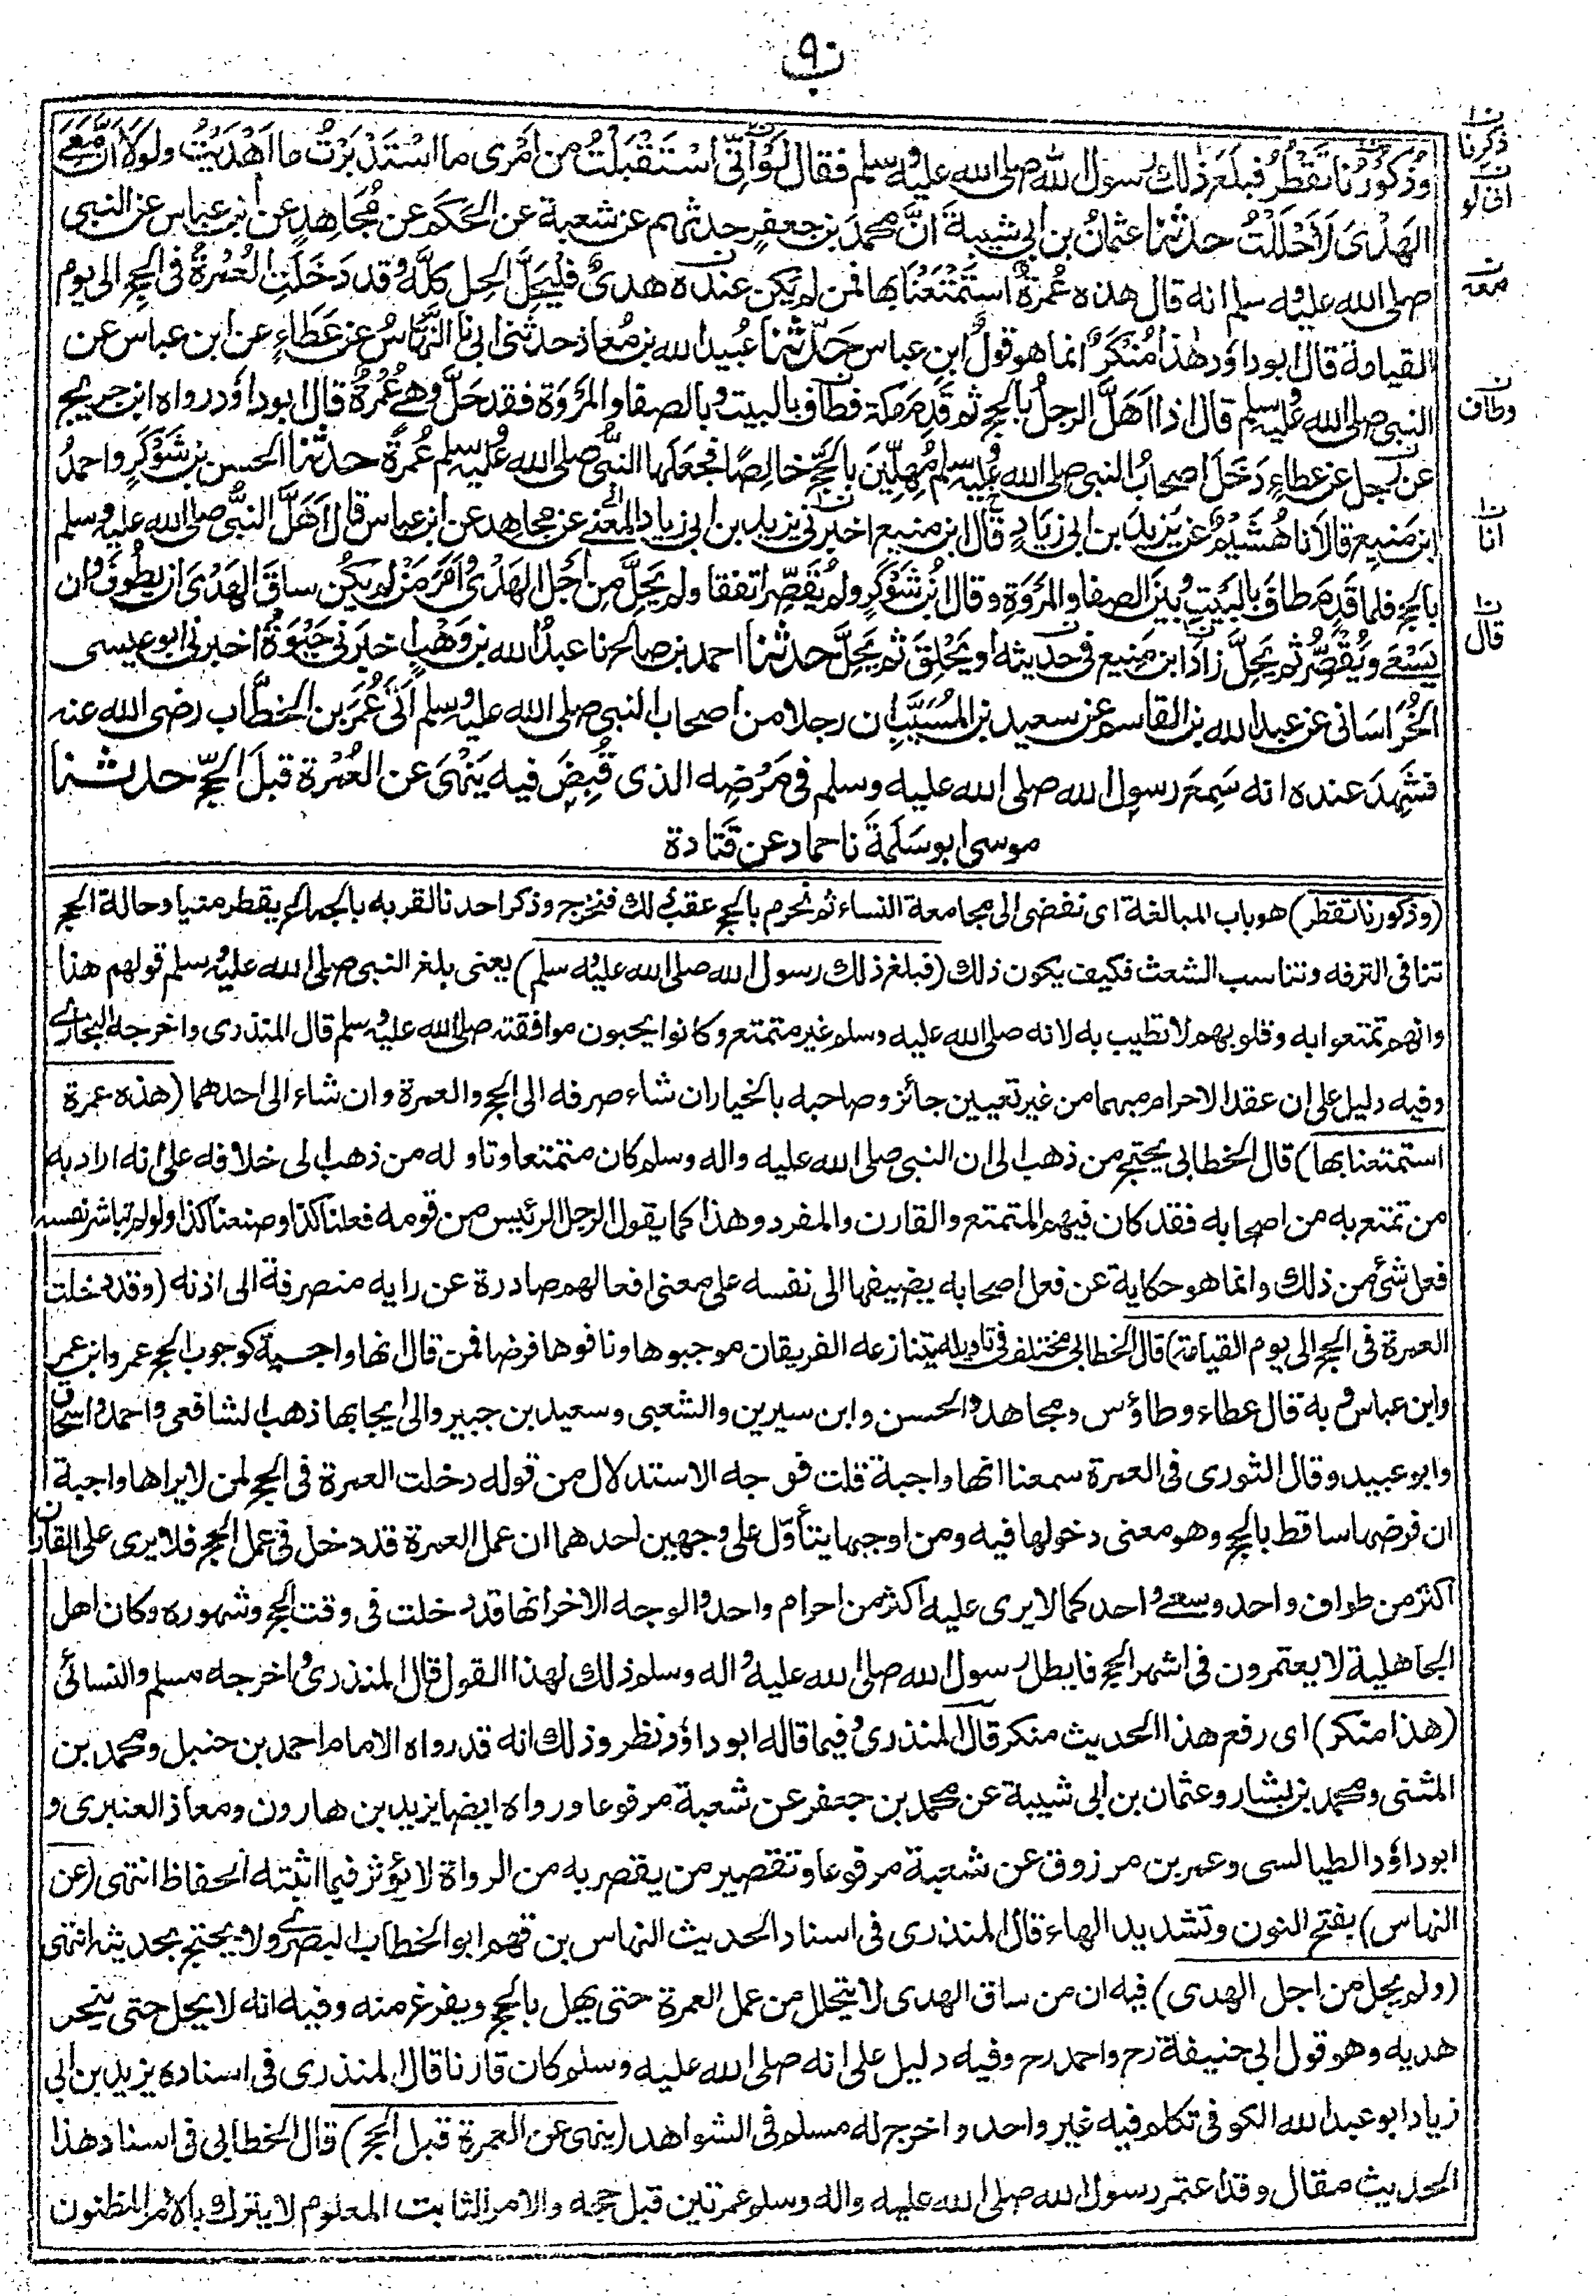 ٩
وَذُكُوْرُنَا تَقْطُرُ فبلغ ذٰلك رسول الله صلى الله عليه وسلم فقال لَوْ اَنِّى اسْتَقْبَلْتُ من اَمْرِى ما اسْتَدْبَرْتُ ما اَهْدَيْتُ ولولا اَنَّ مَعِىَ
الهَدْىَ لَاَحْلَلْتُ حدثنا عثمانُ بن ابى شيبةَ انَّ محمدَ بن جعفرٍ حدثهم عن شعبة عن الحَكَمِ عن مُجَاهِدٍ عن ابن عباس عن النبى
صلى الله عليه وسلم انه قال هذه عُمْرةٌ اسْتَمْتَعْنَا بها فمن لم يكن عنده هدىٌ فليَحِلَّ الحِلَّ كلَّهُ وقد دَخَلَتِ العُمْرَةُ فى الحج الى يوم
القيامة قال ابو داؤد هٰذا مُنْكَرٌ انما هو قولُ ابنِ عباس حَدّثنا عُبيدالله بن مُعاذ حدثنى ابى نا النَّهَّاسُ عن عَطَاءٍ عن ابن عباس عن
النبى صلى الله عليه وسلم قال اذا اَهَلَّ الرجلُ بالحج ثم قَدِمَ مكة فطاف بالبيت وبالصفا والمَرْوَة فقد حَلَّ وهى عُمْرةٌ قال ابو داؤد رواه ابن جريج
عن رجل عن عطاءٍ دَخَلَ اصحابُ النبى صلى الله عليه وسلم مُهِلِّيْنَ بالحَجِّ خالِصًا فجَعَلَها النبىُّ صلى الله عليه وسلم عُمرةً حدثنا الحسن بن شَوْكَرٍ واحمدُ
ابن مَنيع قالا نا هُشَيْمٌ عن يَزيدَ بن ابى زيَادٍ قال ابن منيع اخبرنى يزيد بن ابى زياد المعنى عن مجاهد عن ابن عباس قال اَهَلَّ النبىُّ صلى الله عليه وسلم
بالحج فلما قَدِمَ طافَ بالبَيتِ وبَيْنَ الصفا والمَرْوَةِ وقال ابنُ شَوْكَرٍ ولم يُقَصِّرْ اتفقا ولم يَحِلَّ مِن اَجْلِ الهَدْىِ وامَرَ مَنْ لم يكُن ساقَ الهَدْىَ ان يَطُوفَ وان
يَسْعى ويُقَصِّرَ ثم يَحِلَّ زادَ ابن مَنيع فى حديثه او يَحْلِقَ ثم يَحِلَّ حدثنا احمد بن صالح نا عبدُ الله بن وَهْبٍ اخبَرَنى حَيْوَةُ اخبرنى ابو عيسى
الخُرَاسَانى عن عبد الله بن القاسم عن سعيد بن المُسَيَّبِ ان رجلا من اصحاب النبى صلى الله عليه وسلم اَتَى عُمَرَ بن الخطَّاب رضى الله عنه
فشَهِدَ عنده انه سَمِعَ رسول الله صلى الله عليه وسلم فى مَرَضِه الذى قُبِضَ فيه يَنْهَى عن العُمْرة قبلَ الحَجِّ حدثنا
موسى ابو سَلَمَةَ نا حماد عن قَتَادة
ذكرنا
انى لو
معه
وطاف
انا
قال
(وذكورنا تقطر) هو باب المبالغة اى نفضى الى مجامعة النساء ثم نحرم بالحج عقب ذلك فنخرج وذكر احدنا لقربه بالجماع يقطر منيا وحالة الحج
تنافى الترفه وتناسب الشعث فكيف يكون ذلك (فبلغ ذلك رسول الله صلى الله عليه وسلم) يعنى بلغ النبى صلى الله عليه وسلم قولهم هذا
وانهم تمتعوا به وقلوبهم لا تطيب به لانه صلى الله عليه وسلم غير متمتع وكانوا يحبون موافقته صلى الله عليه وسلم قال المنذرى واخرجه البخارى
وفيه دليل على ان عقد الاحرام مبهما من غير تعيين جائز وصاحبه بالخيار ان شاء صرفه الى الحج والعمرة وان شاء الى احدهما (هذه عمرة
استمتعنا بها) قال الخطابى يحتج من ذهب الى ان النبى صلى الله عليه واله وسلم كان متمتعا وتاوله من ذهب الى خلافه على انه اراد به
من تمتع به من اصحابه فقد كان فيهم المتمتع والقارن والمفرد وهذا كما يقول الرجل الرئيس من قومه فعلنا كذا وصنعنا كذا ولو لم يباشر نفسه
فعل شئ من ذلك وانما هو حكاية عن فعل اصحابه يضيفها الى نفسه على معنى افعالهم صادرة عن رايه منصرفة الى اذنه (وقد دخلت
العمرة فى الحج الى يوم القيامة) قال الخطابى مختلف فى تاويله يتنازعه الفريقان موجبوها ونافوها فرضا فمن قال انها واجبة كوجوب الحج عمر وابن عمر
وابن عباس وبه قال عطاء وطاؤس ومجاهد والحسن وابن سيرين والشعبى وسعيد بن جبير والى ايجابها ذهب الشافعى واحمد واسحاق
وابو عبيد وقال الثورى فى العمرة سمعنا انها واجبة قلت فوجه الاستدلال من قوله دخلت العمرة فى الحج لمن لا يراها واجبة
ان فرضها ساقط بالحج وهو معنى دخولها فيه ومن اوجبها يتأوّل على وجهين احدهما ان عمل العمرة قد دخل فى عمل الحج فلا يرى على القارن
اكثر من طواف واحد وسعى واحد كما لا يرى عليه اكثر من احرام واحد والوجه الاخر انها قد دخلت فى وقت الحج وشهوره وكان اهل
الجاهلية لا يعتمرون فى اشهر الحج فابطل رسول الله صلى الله عليه واله وسلم ذلك لهذا القول قال المنذرى واخرجه مسلم والنسائى
(هذا منكر) اى رفع هذا الحديث منكر قال المنذرى وفيما قاله ابو داؤد نظر وذلك انه قد رواه الامام احمد بن حنبل ومحمد بن
المثنى ومحمد بن بشار وعثمان بن ابى شيبة عن محمد بن جعفر عن شعبة مرفوعا ورواه ايضا يزيد بن هارون ومعاذ العنبرى و
ابو داؤد الطيالسى وعمر بن مرزوق عن شعبة مرفوعا وتقصير من يقصر به من الرواة لا يؤثر فيما اثبته الحفاظ انتهى (عن
النهاس) بفتح النون وتشديد الهاء قال المنذرى فى اسناد الحديث النهاس بن قهم ابو الخطاب البصرى ولا يحتج بحديثه انتهى
(ولم يحل من اجل الهدى) فيه ان من ساق الهدى لا يتحلل من عمل العمرة حتى يهل بالحج ويفرغ منه وفيه انه لا يحل حتى ينحر
هديه وهو قول ابى حنيفة رح واحمد رح وفيه دليل على انه صلى الله عليه وسلم كان قارنا قال المنذرى فى اسناده يزيد بن ابى
زياد ابو عبد الله الكوفى تكلم فيه غير واحد واخرج له مسلم فى الشواهد (ينهى عن العمرة قبل الحج) قال الخطابى فى اسناد هذا
الحديث مقال وقد اعتمر رسول الله صلى الله عليه واله وسلم عمرتين قبل حجه والامر الثابت المعلوم لا يترك بالامر المظنون